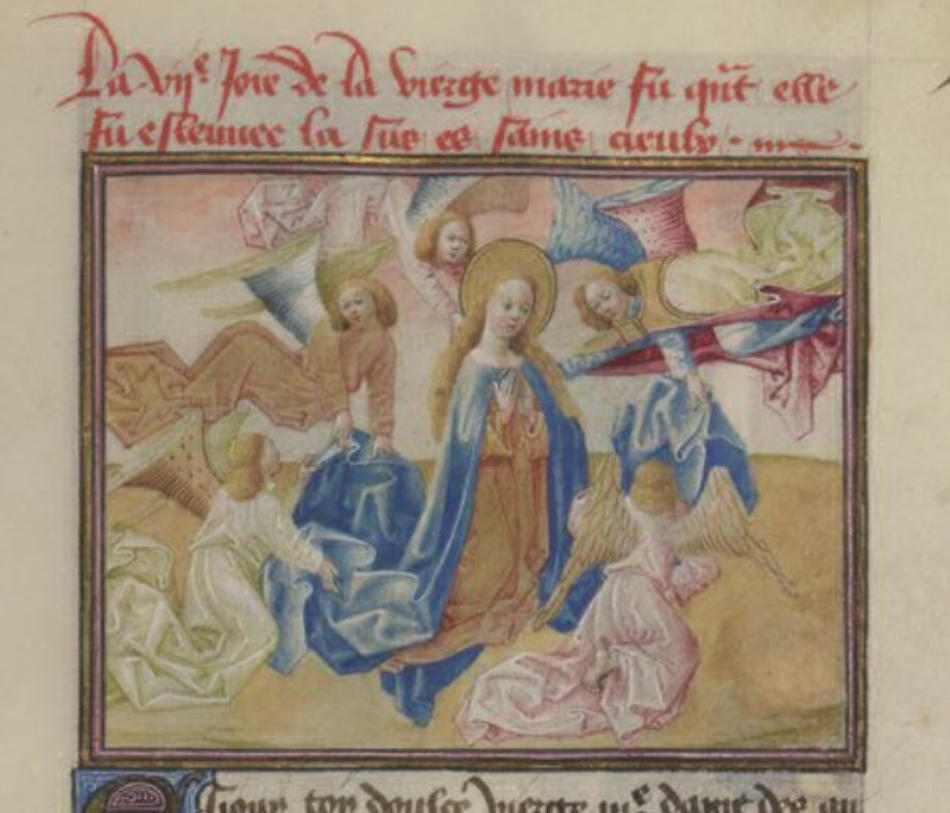 La vije Joie de la vierge marie fu qñt elle
fu esleuuee la sus es sains cieulx
Siouy toy doulce vierge me dame des an